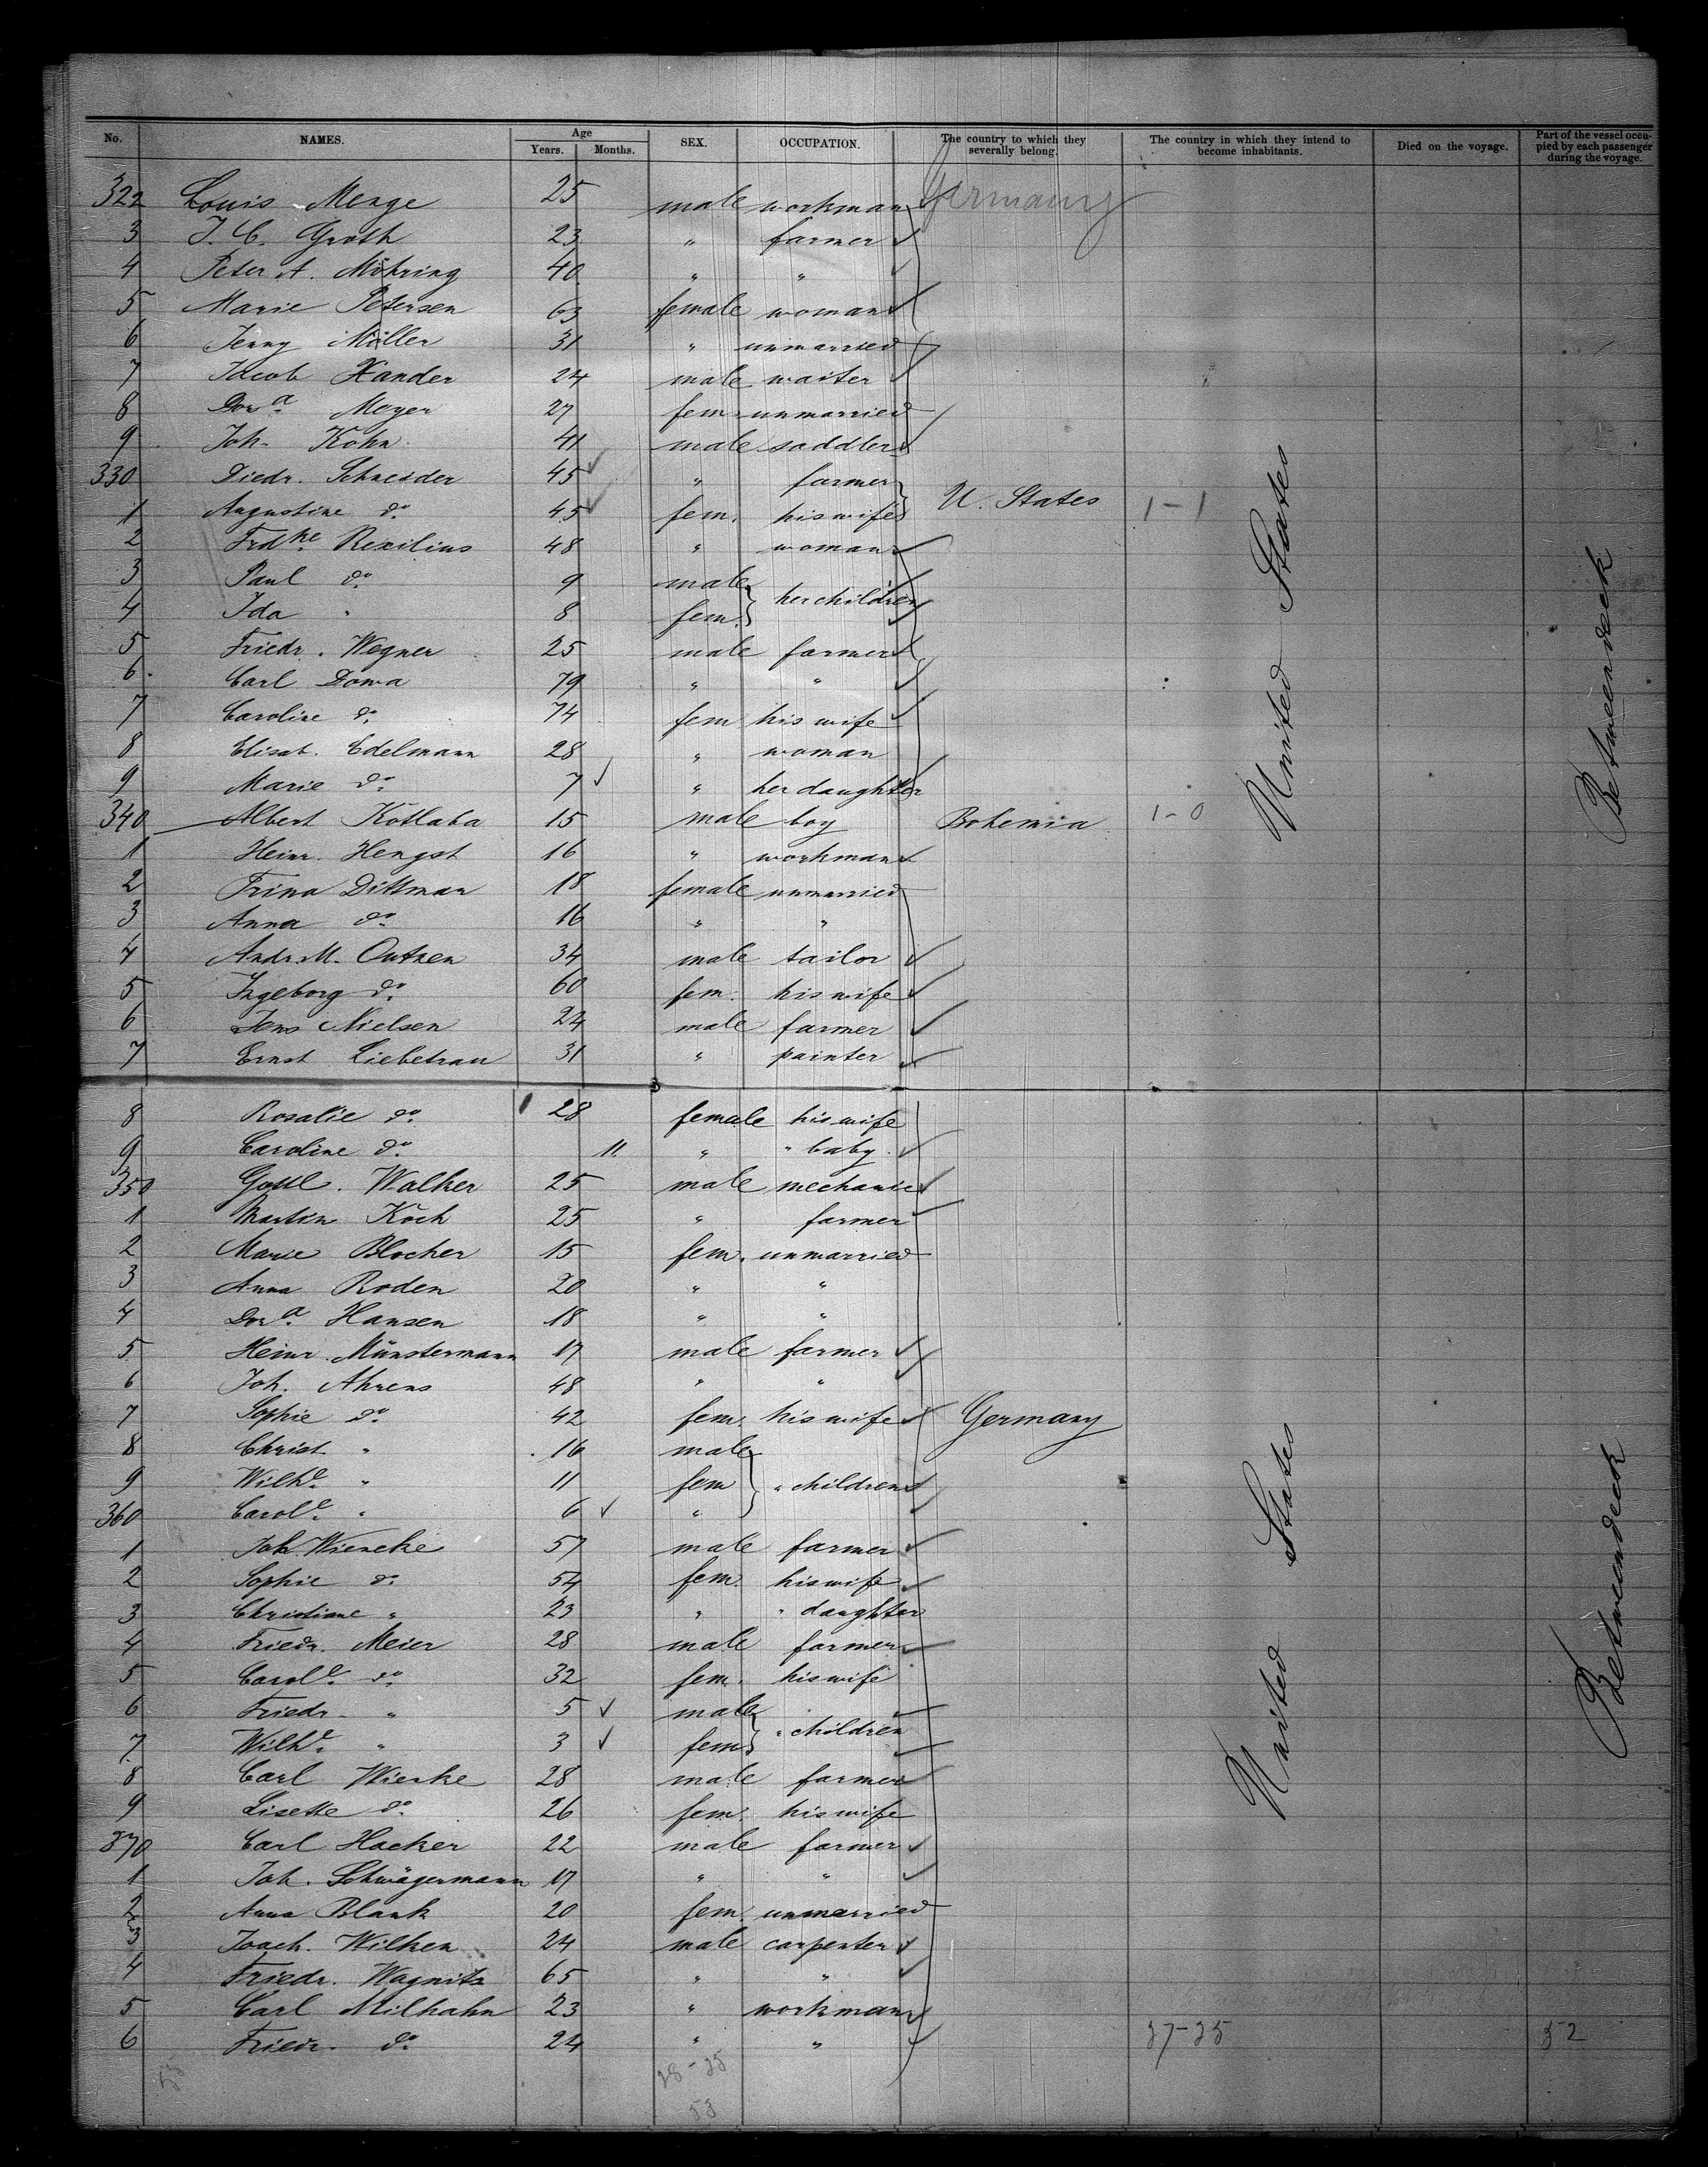 No. NAMES. Age Years. Months. SEX. OCCUPATION. The country to which they severally belong. The country in which they intend to become inhabitants. Died on the voyage. Part of the vessel occupied by each passenger during the voyage.
322 Louis Menge 25 male workman Germany
3 J. C. Groth 23 " farmer
4 Peter A. Möhring 40 " "
5 Marie Petersen 63 female woman
6 Jenny Möller 31 " unmarried
7 Jacob Xander 24 male waiter
8 Dora Meyer 27 fem. unmarried
9 Joh. Kohn 41 male saddler
330 Diedr. Schneider 45 " farmer
1 Augustine do. 45 fem. his wife U. States 1-1
2 Frdke Rexilius 48 " woman
3 Paul do. 9 male
4 Ida " 8 fem. her children
5 Friedr. Wegner 25 male farmer
6 Carl Doma 79 " "
7 Caroline do. 74 fem his wife
8 Elisab. Edelmann 28 " woman
9 Marie do. 7 " her daughter
340 Albert Kotlaba 15 male boy Bohemia 1-0
1 Heinr. Hengst 16 " workman
2 Trina Dittman 18 female unmarried
3 Anna do. 16 " "
4 Andr. M. Outzen 34 male tailor
5 Ingeborg do. 60 fem. his wife
6 Jens Nielsen 24 male farmer
7 Ernst Liebetrau 31 " painter
United States
Betweendeck
8 Rosalie do. 28 female his wife
9 Caroline do. 11 " " baby
350 Gottl. Walker 25 male mechanic
1 Martin Koch 25 " farmer
2 Marie Blocher 15 fem. unmarried
3 Anna Roden 20 " "
4 Dora Hansen 18 " "
5 Heinr. Münstermann 17 male farmer
6 Joh. Ahrens 48 " "
7 Sophie do. 42 fem. his wife Germany
8 Christ " 16 male
9 Wilhe. " 11 fem " children
360 Carole. " 6 "
1 Joh. Wiencke 57 male farmer
2 Sophie do. 54 fem. his wife
3 Christiane " 23 " " daughter
4 Friedr. Meier 28 male farmer
5 Carole. do. 32 fem. his wife
6 Friedr. " 5 male
7 Wilhe. " 3 fem " children
8 Carl Wienke 28 male farmer
9 Lisette do. 26 fem. his wife
370 Carl Hacker 22 male farmer
1 Joh. Schwägermann 17 " "
2 Anna Blank 20 fem. unmarried
3 Joach. Wilken 24 male carpenter
4 Friedr. Wagnitz 65 " "
5 Carl Milhahn 23 " workman
6 Friedr. do. 24 " " 27-25 52
United States
Betweendeck
55 28-25
53